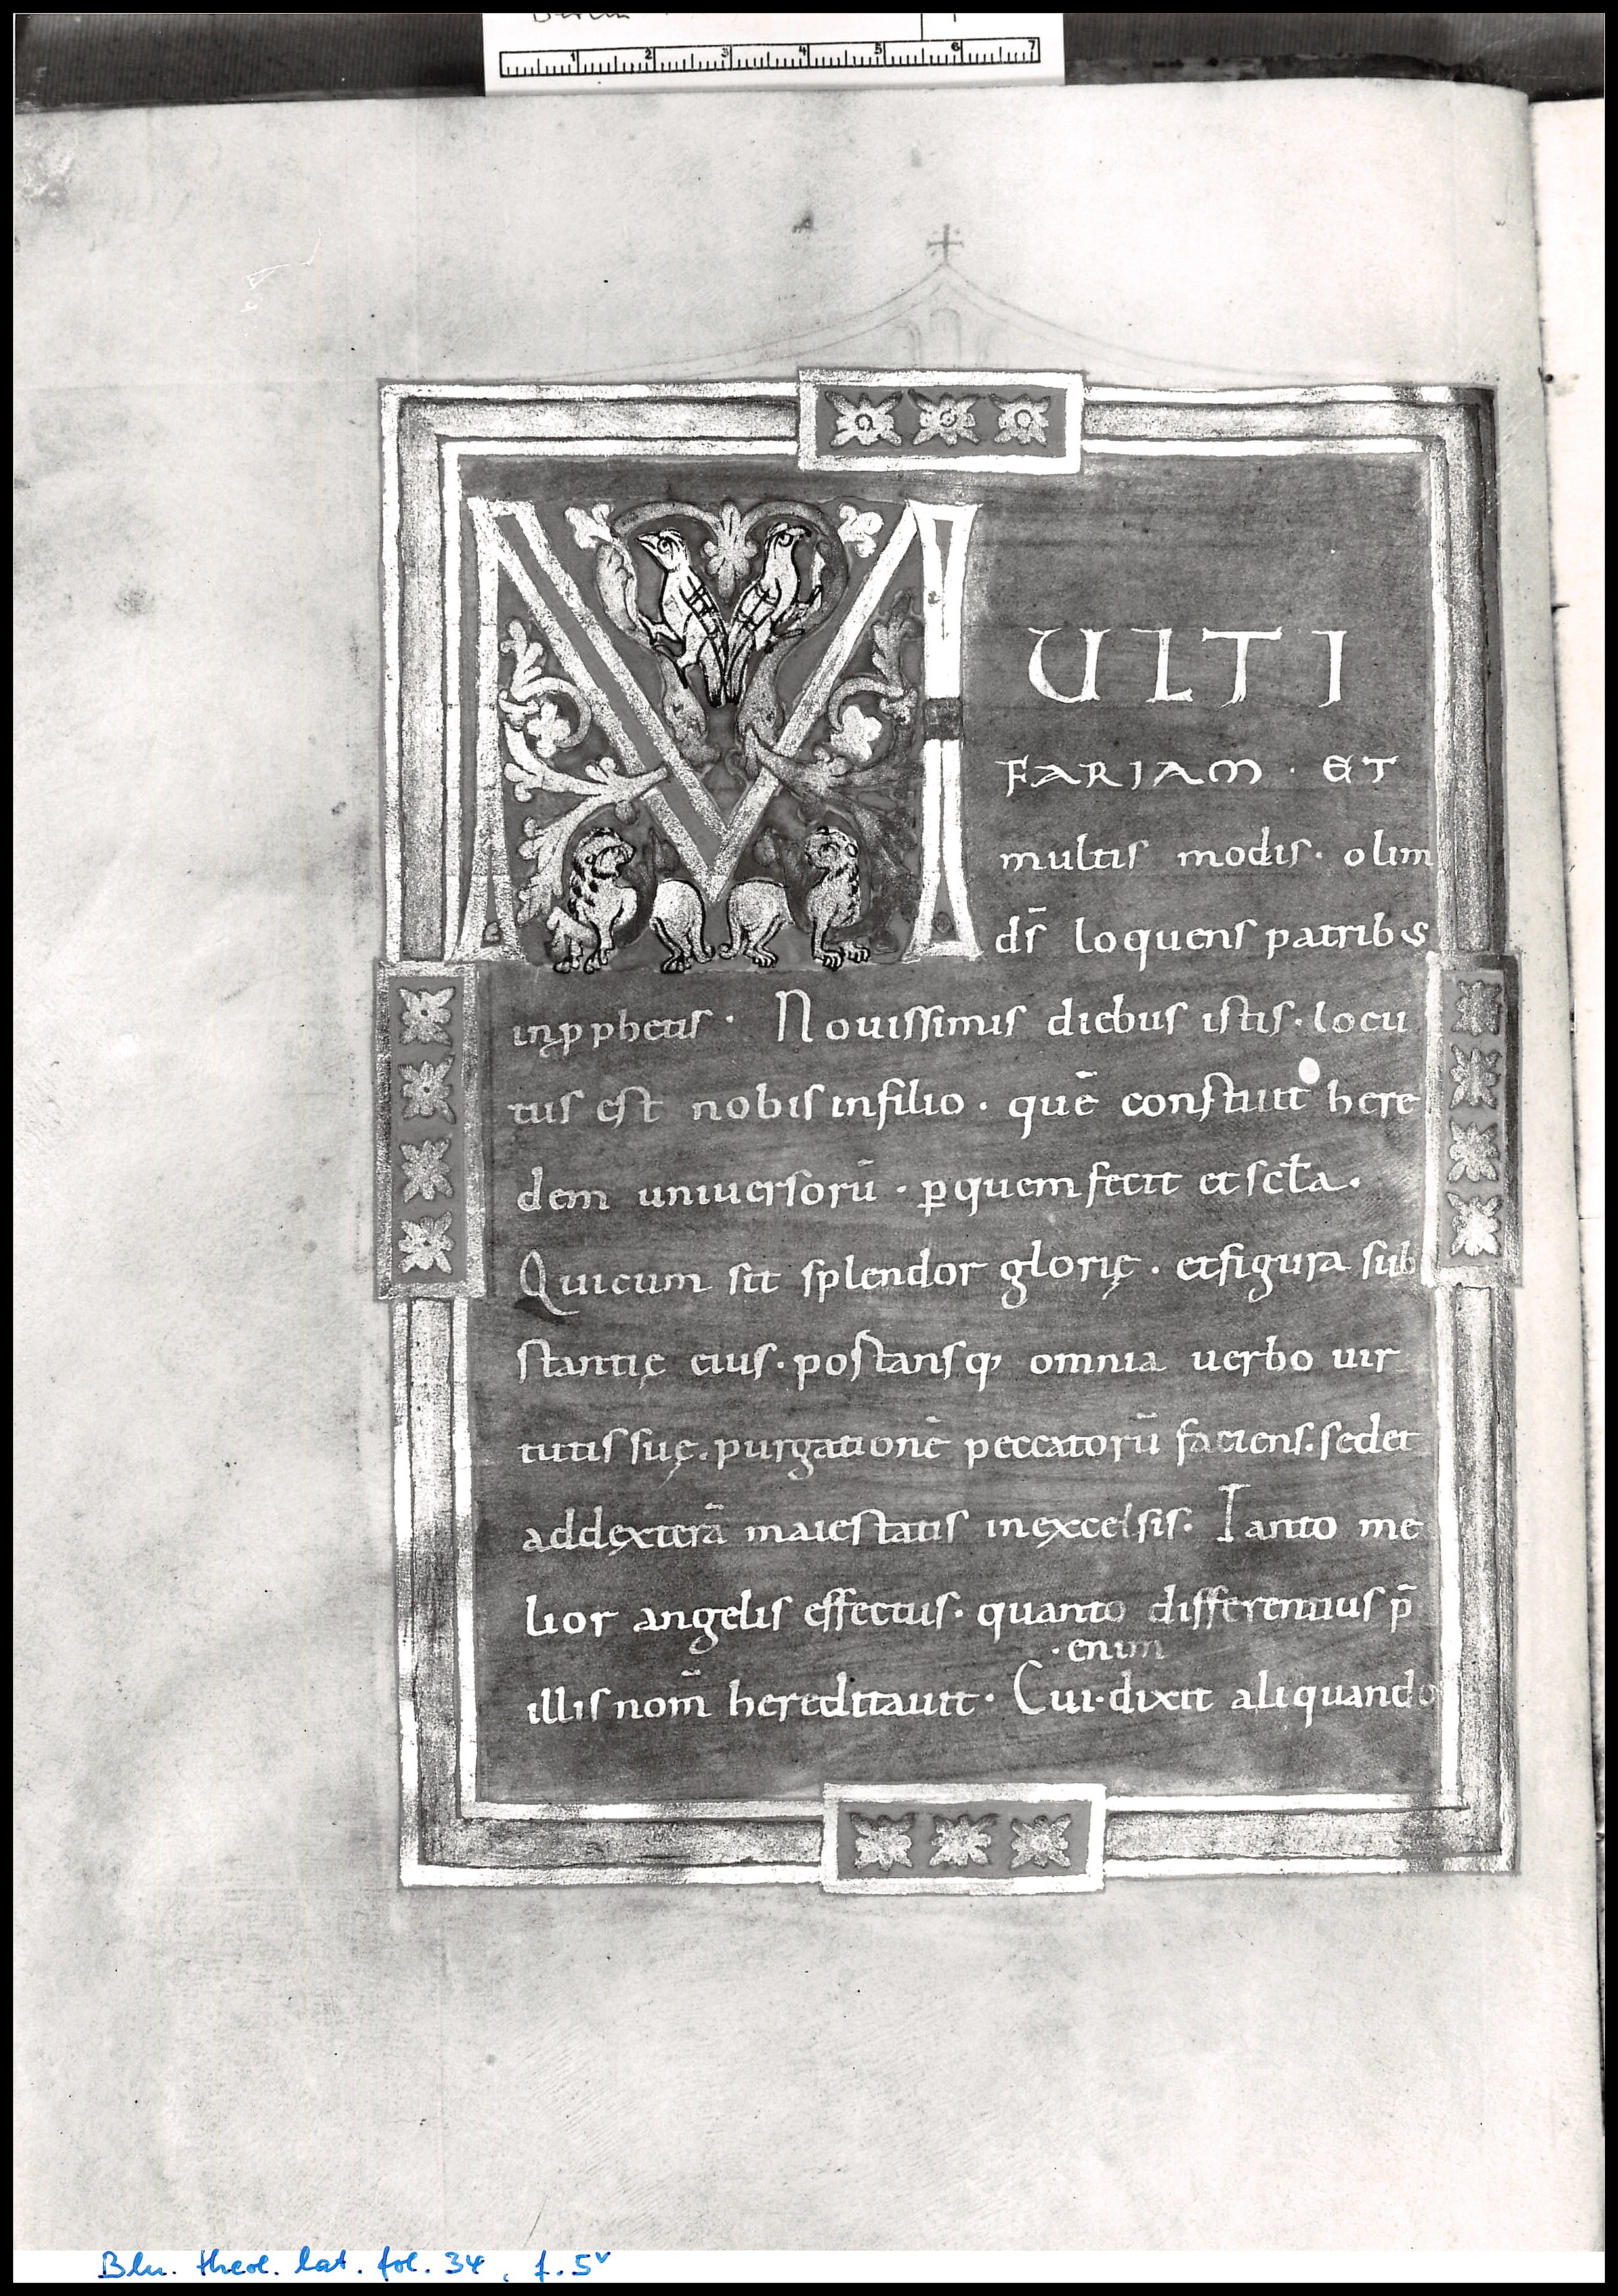 1 2 3 4 5 6 7
MULTI
FARIAM · ET
multis modis · olim
ds̄ loquens patribus
inpphetis · Nouissimis diebus istis · locu
tus est nobis infilio · quē constituit here
dem uniuersorū · ꝑquem fecit et scl̄a ·
Quicum sit splendor glorię · etfigura sub
stantię eius · postansq; omnia uerbo uir
tutis suę · purgationē peccatorū faciens · sedet
addexterā maiestatis inexcelsis · Tanto me
lior angelis effectus · quanto differentius p̄
· enim
illis nom̄ hereditauit · Cui · dixit aliquando
Bln. theol. lat. fol. 34, f. 5v